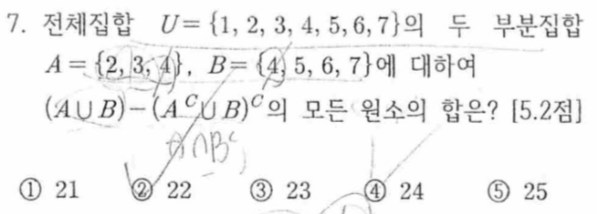 7. 전체집합 U = {1, 2, 3, 4, 5, 6, 7}의 두 부분집합
A = {2, 3, 4}, B = {4, 5, 6, 7}에 대하여
(A∪B)−(Aᶜ∪B)ᶜ의 모든 원소의 합은? [5.2점]
A∩Bᶜ
① 21 ② 22 ③ 23 ④ 24 ⑤ 25